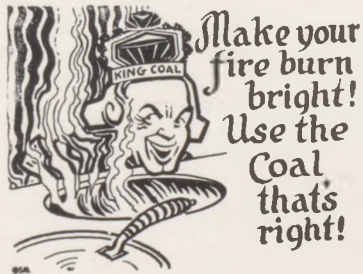 KING COAL
Make your
fire burn
bright!
Use the
Coal
that's
right!